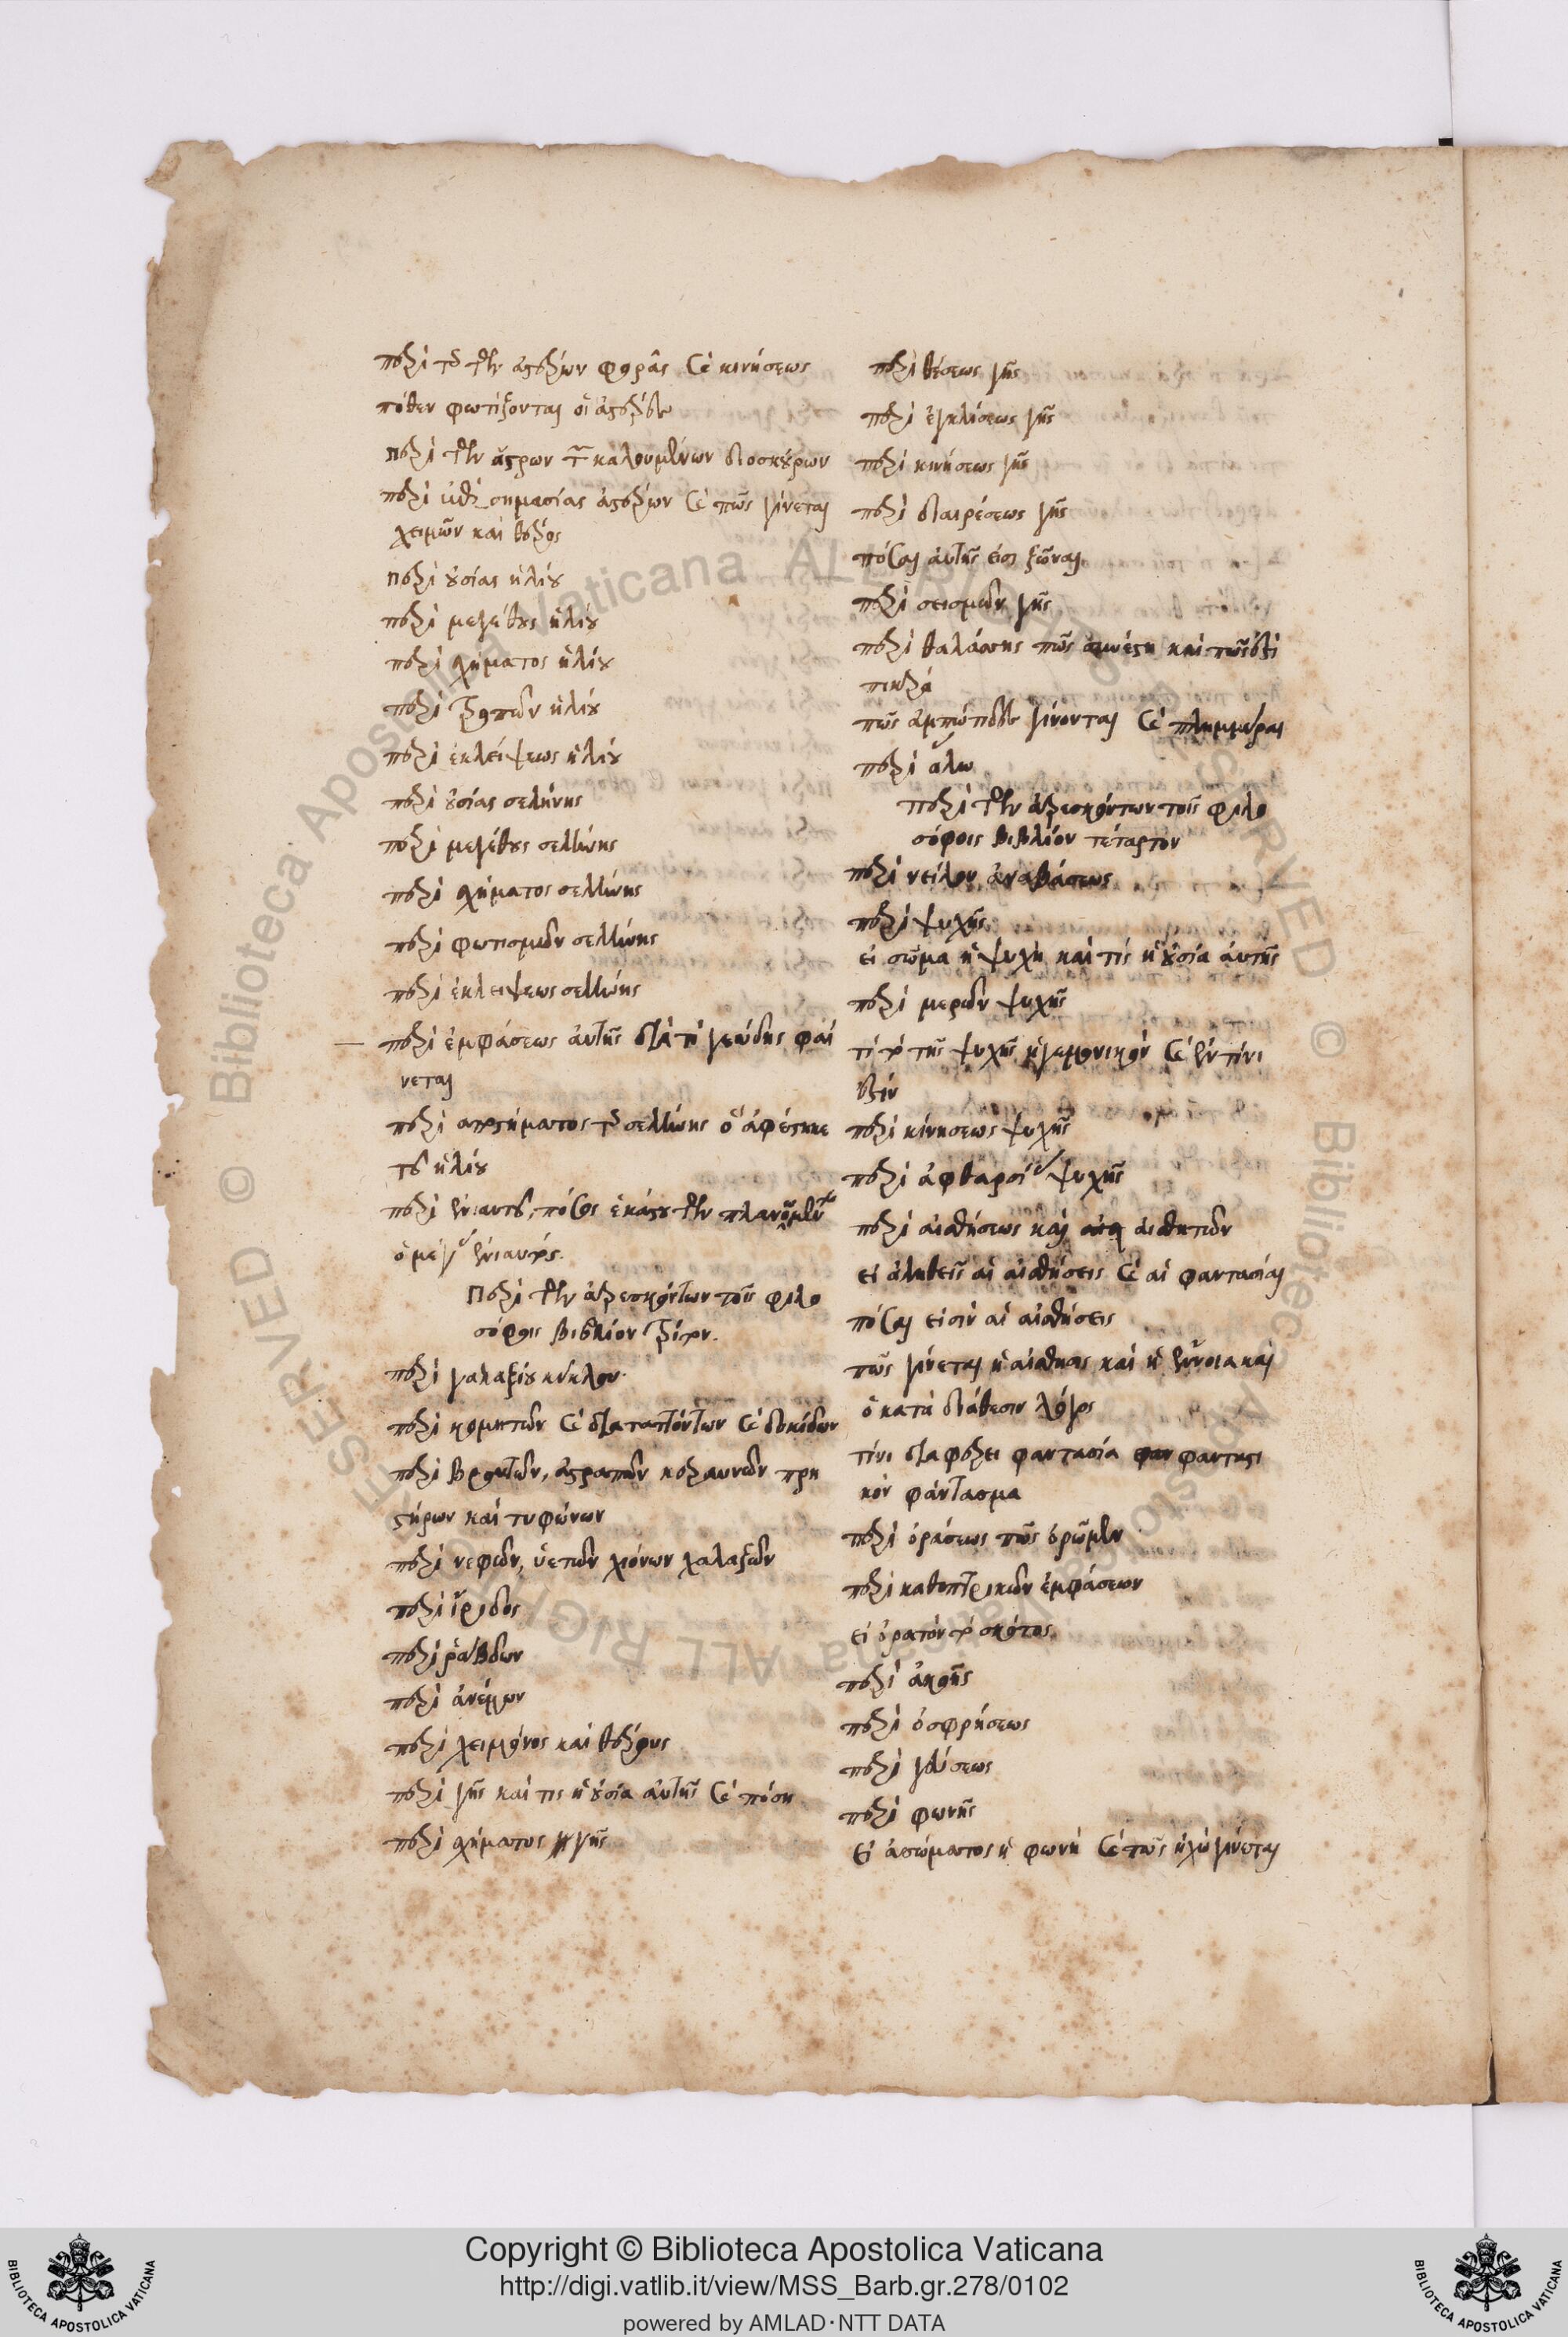 περὶ τῆς τῶν ἀστέρων φορᾶς καὶ κινήσεως
πόθεν φωτίζονται οἱ ἀστέρες
περὶ τῶν ἄστρων τῶν καλουμένων διοσκούρων
περὶ ἐπισημασίας ἀστέρων καὶ πῶς γίνεται
χειμὼν καὶ θέρος
περὶ οὐσίας ἡλίου
περὶ μεγέθους ἡλίου
περὶ σχήματος ἡλίου
περὶ τροπῶν ἡλίου
περὶ ἐκλείψεως ἡλίου
περὶ οὐσίας σελήνης
περὶ μεγέθους σελήνης
περὶ σχήματος σελήνης
περὶ φωτισμῶν σελήνης
περὶ ἐκλειψεως σελήνης
περὶ ἐμφάσεως αὐτῆς διὰ τί γεώδης φαί
νεται
περὶ αποστήματος τῆς σελήνης ὃ ἀφέστηκε
τοῦ ἡλίου
περὶ ἐνιαυτοῦ, πόσος ἑκάστου τῶν πλανωμένων
ὁ μέγας ἐνιαυτός.
Περὶ τῶν ἀρεσκόντων τοῖς φιλο
σόφοις βιβλίον τρίτον.
περὶ γαλαξίου κύκλου.
περὶ κομητῶν καὶ διαταττόντων καὶ δοκίδων
περὶ βροντῶν, ἀστραπῶν κεραυνῶν πρη
στήρων καὶ τυφώνων
περὶ νεφῶν, ὑετῶν χιόνων χαλαζῶν
περὶ ἴριδος
περὶ ῥάβδων
περὶ ἀνέμων
περὶ χειμῶνος καὶ θέρους
περὶ γῆς καὶ τις ἡ οὐσία αὐτῆς καὶ πόση
περὶ σχήματος γῆς
περὶ θέσεως γῆς
περὶ ἐγκλίσεως γῆς
περὶ κινήσεως γῆς
περὶ διαιρέσεως γῆς
πόσαι αὐτῆς εἰσι ζῶναι
περὶ σεισμῶν γῆς
περὶ θαλάσσης πῶς συνέστη καὶ πῶς ἐστὶ
πικρά
πῶς ἀμπώτιδες γίνονται καὶ πλημμύραι
περὶ ἅλω
Περὶ τῶν ἀρεσκόντων τοῖς φιλο
σόφοις βιβλίον τέταρτον
περὶ νείλου ἀναβάσεως
περὶ ψυχῆς
εἰ σῶμα ἡ ψυχὴ καὶ τίς ἡ οὐσία αὐτῆς
περὶ μερῶν ψυχῆς
τί τὸ τῆς ψυχῆς ἡγεμονικὸν καὶ ἐν τίνι
ἐστίν
περὶ κινήσεως ψυχῆς
περὶ ἀφθαρσίας ψυχῆς
περὶ αἰσθήσεως καὶ αἰσθητῶν
εἰ ἀληθεῖς αἱ αἰσθήσεις καὶ αἱ φαντασίαι
πόσαι εἰσὶν αἱ αἰσθήσεις
πῶς γίνεται ἡ αἴσθησις καὶ ἡ ἔννοια καὶ
ὁ κατὰ διάθεσιν λόγος
τίνι διαφέρει φαντασία φανταστι
κὸν φάντασμα
περὶ ὁράσεως πῶς ὁρῶμεν
περὶ κατοπτρικῶν ἐμφάσεων
εἰ ὁρατὸν τὸ σκότος
περὶ ἀκοῆς
περὶ ὀσφρήσεως
περὶ γεύσεως
περὶ φωνῆς
Εἰ ἀσώματος ἡ φωνὴ καὶ πῶς ἠχὼ γίνεται
Copyright © Biblioteca Apostolica Vaticana
http://digi.vatlib.it/view/MSS_Barb.gr.278/0102
powered by AMLAD·NTT DATA